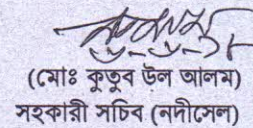 (মোঃ কুতুব উল আলম)
সহকারী সচিব (নদীসেল)